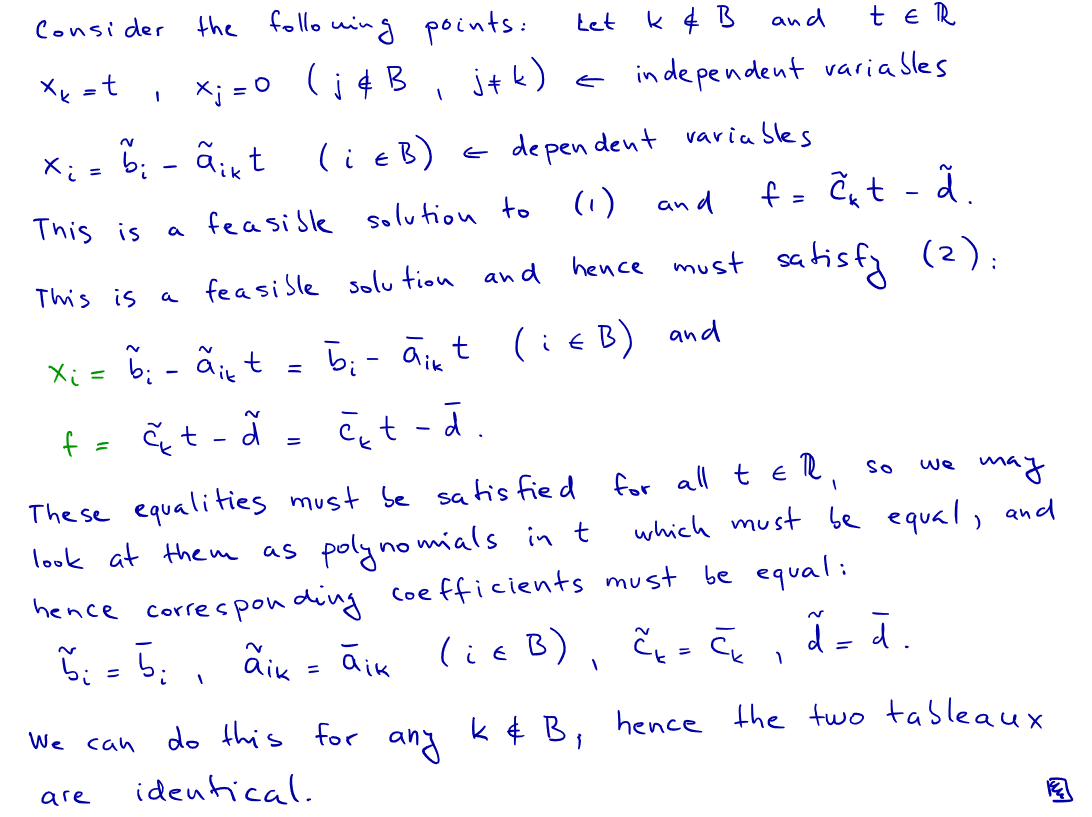 Consider the following points: Let k ∉ B and t ∈ ℝ
xₖ = t , xⱼ = 0 ( j ∉ B , j ≠ k ) ← independent variables
xᵢ = b̃ᵢ - ãᵢₖ t ( i ∈ B ) ← dependent variables
This is a feasible solution to (1) and f = c̃ₖ t - d̃ .
This is a feasible solution and hence must satisfy (2) :
xᵢ = b̃ᵢ - ãᵢₖ t = b̄ᵢ - āᵢₖ t ( i ∈ B ) and
f = c̃ₖ t - d̃ = c̄ₖ t - d̄ .
These equalities must be satisfied for all t ∈ ℝ, so we may
look at them as polynomials in t which must be equal, and
hence corresponding coefficients must be equal:
b̃ᵢ = b̄ᵢ , ãᵢₖ = āᵢₖ ( i ∈ B ) , c̃ₖ = c̄ₖ , d̃ = d̄ .
We can do this for any k ∉ B, hence the two tableaux
are identical.